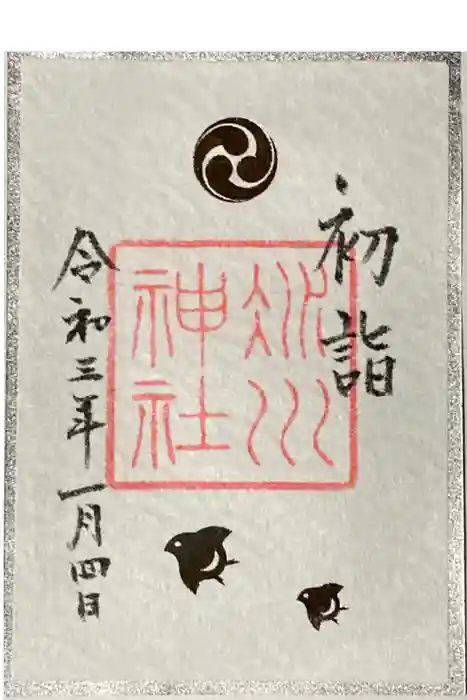 初詣
氷川
神社
令和三年一月四日